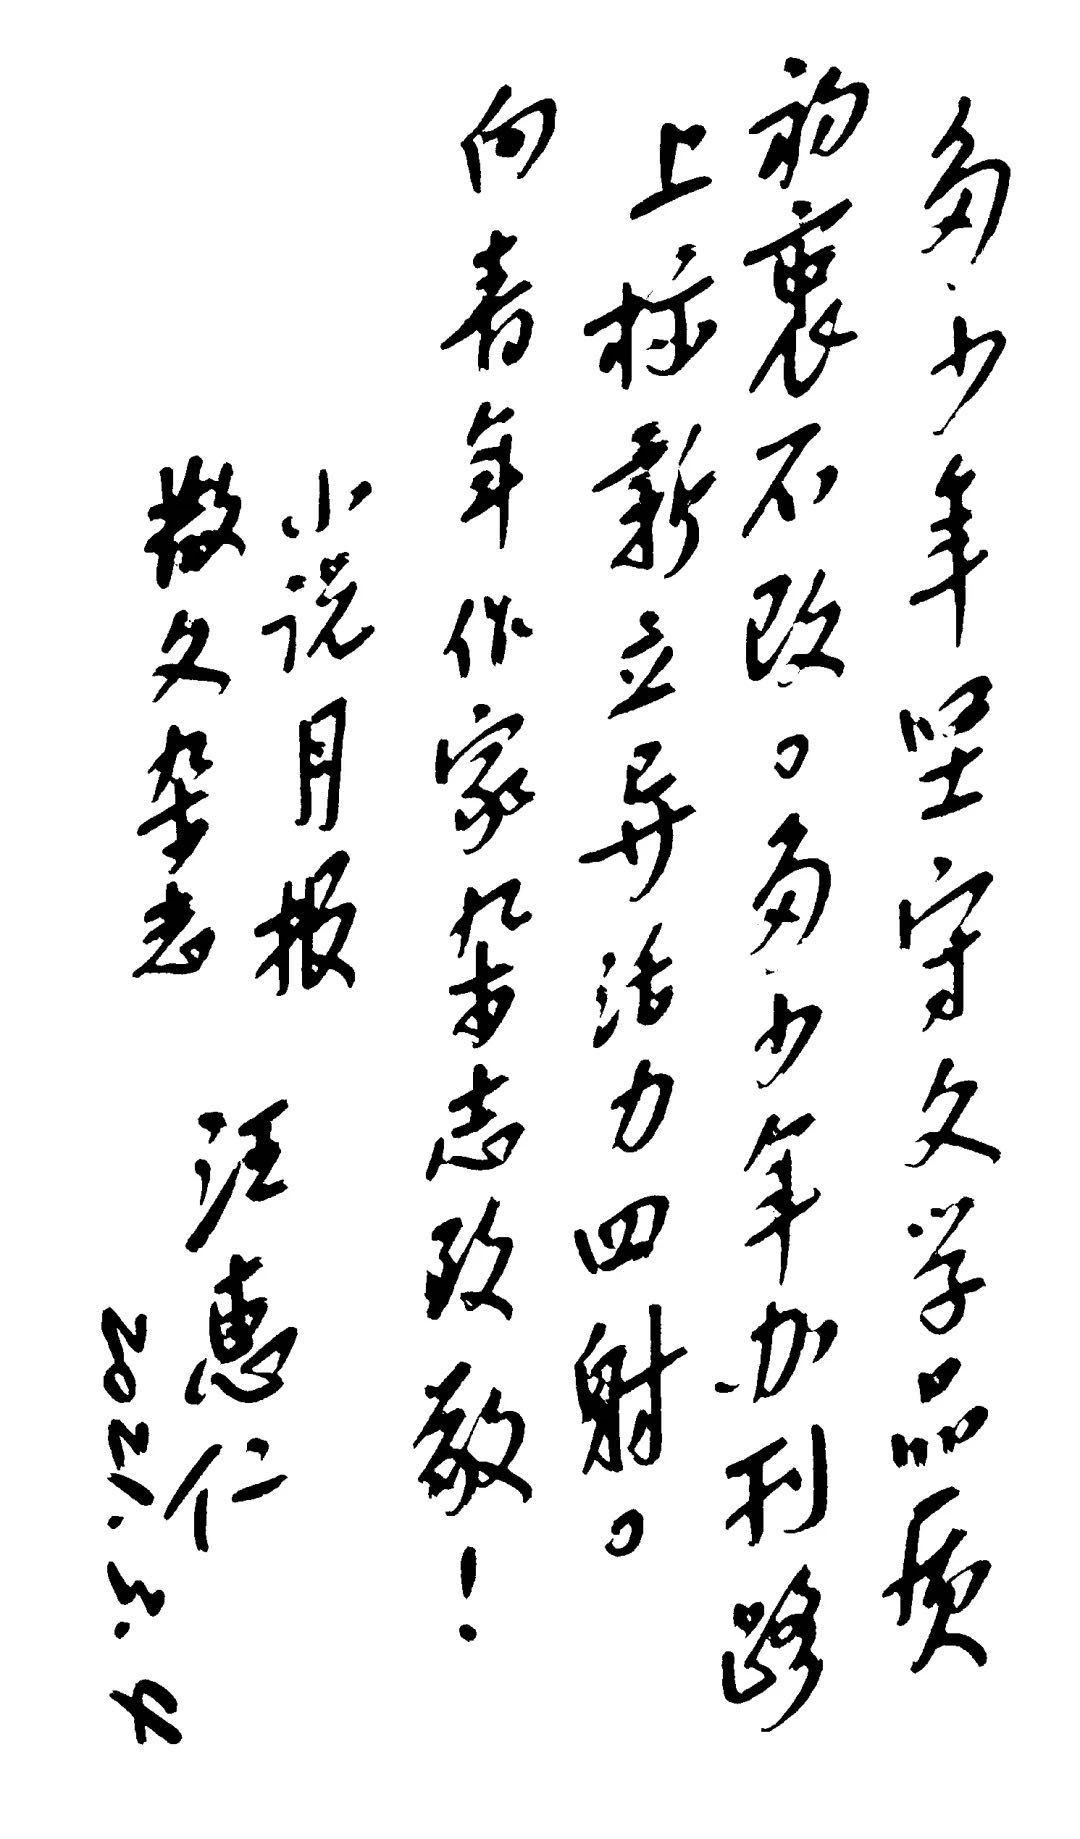 多少年坚守文学品质
初衷不改。多少年办刊路
上标新立异活力四射。
向青年作家杂志致敬！
小说月报
散文杂志
汪惠仁
2021.3.4